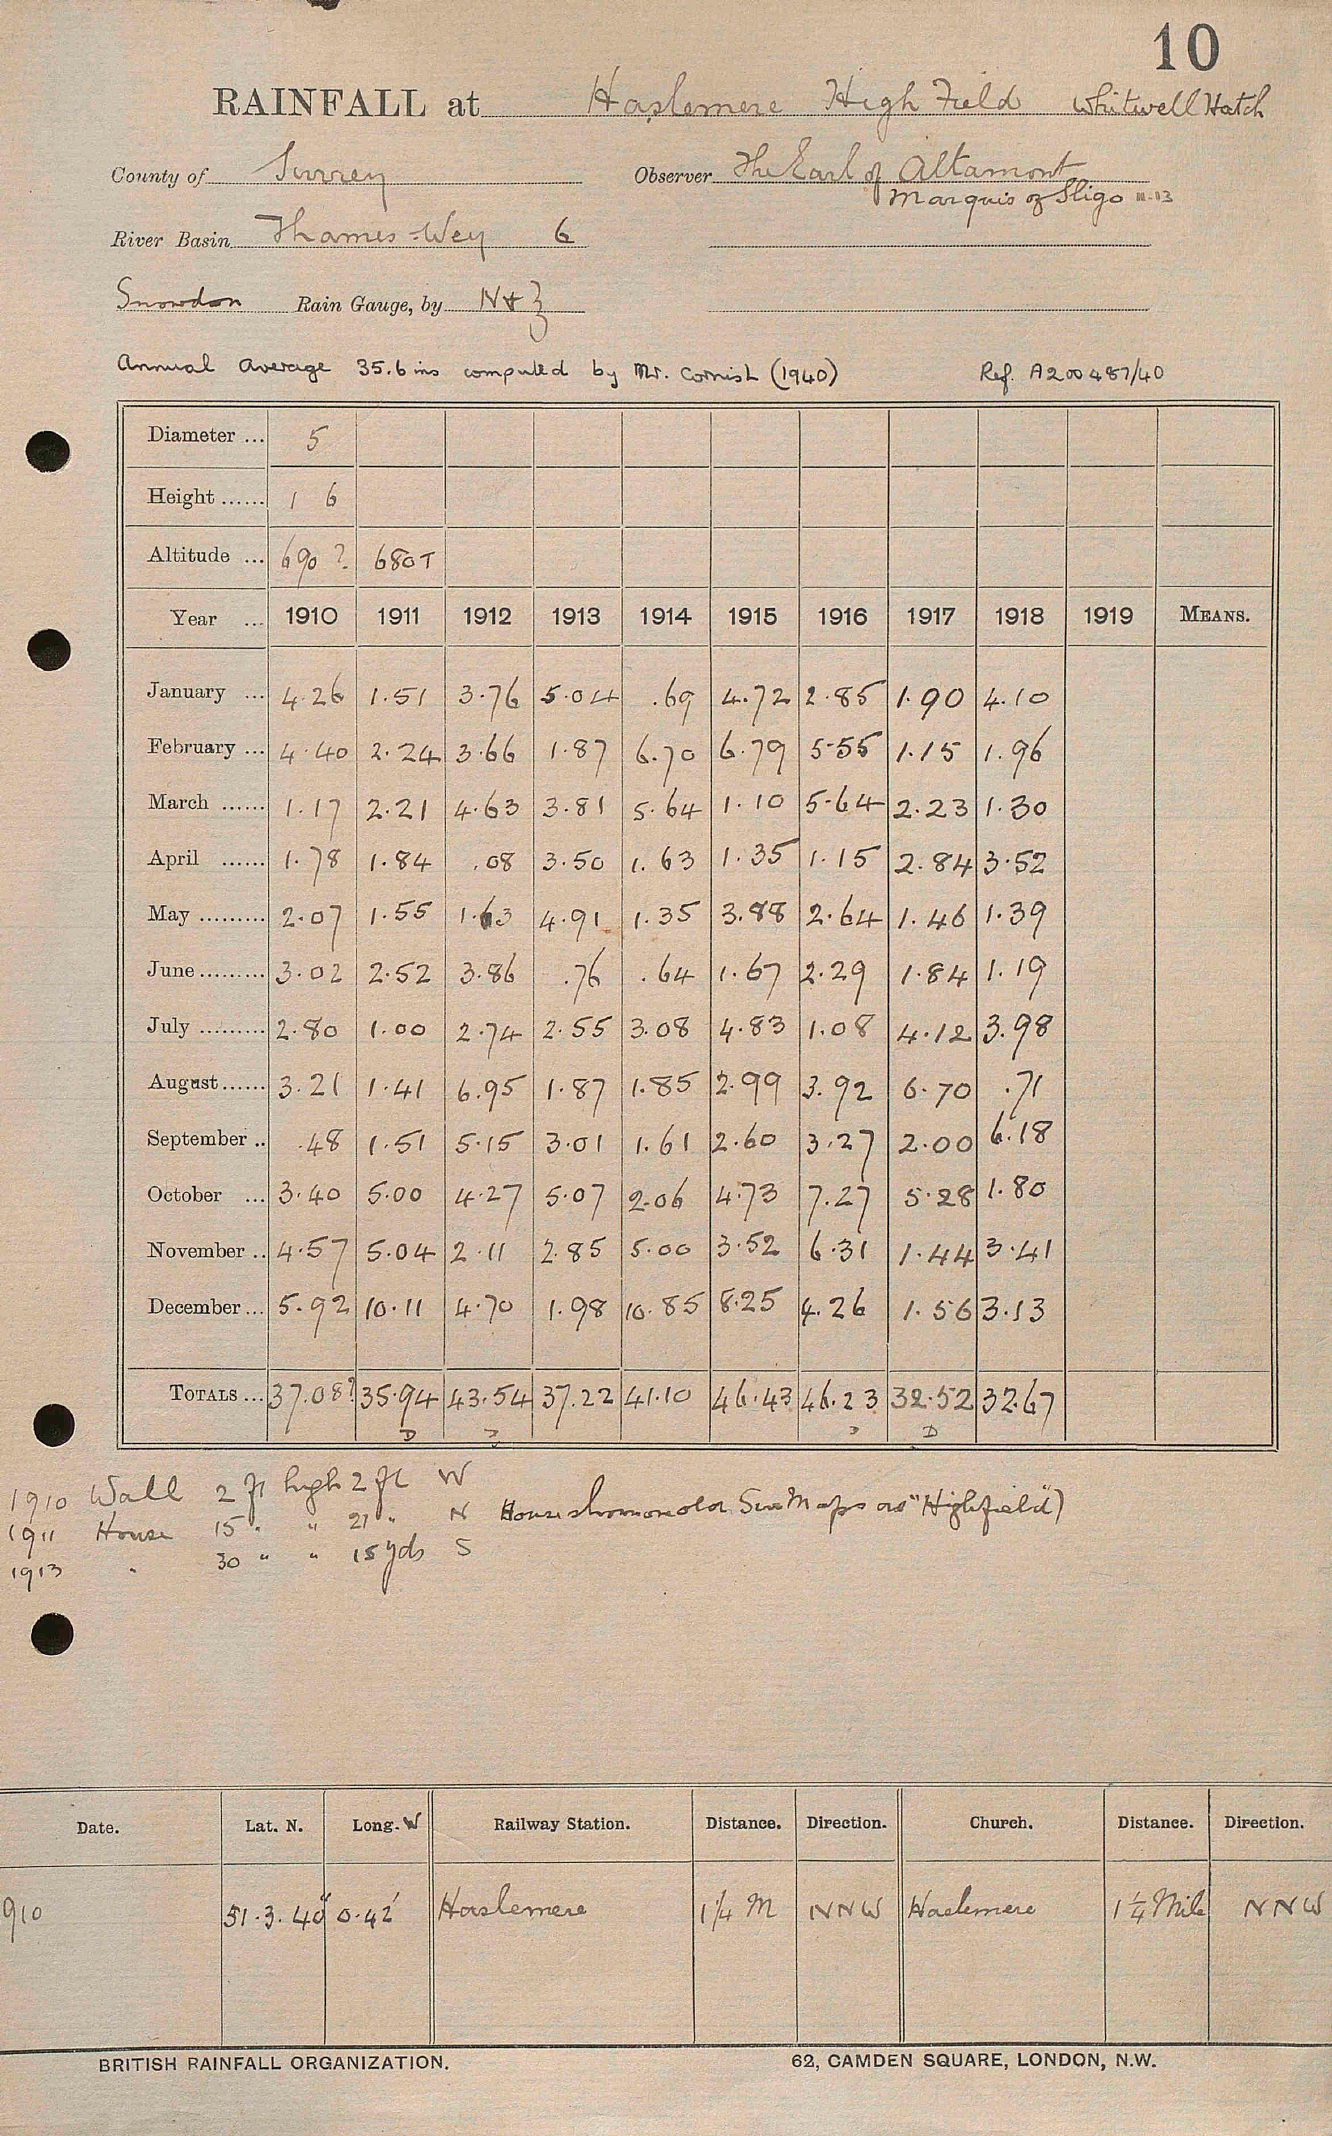 10
RAINFALL at Haslemere High Field Whitwell Hatch
County of Surrey Observer The Earl of Altamont
Marquis of Sligo 11-13
River Basin Thames-Wey 6
Snowdon Rain Gauge, by N & Z
Annual Average 35.6 ins computed by Mr. Cornish (1940) Ref. A200487/40
Diameter ... 5
Height ...... 1 6
Altitude ... 690 ? 680T
Year ... 1910 1911 1912 1913 1914 1915 1916 1917 1918 1919 MEANS.
January ... 4.26 1.51 3.76 5.04 .69 4.72 2.85 1.90 4.10
February ... 4.40 2.24 3.66 1.87 6.70 6.79 5.55 1.15 1.96
March ...... 1.17 2.21 4.63 3.81 5.64 1.10 5.64 2.23 1.30
April ...... 1.78 1.84 .08 3.50 1.63 1.35 1.15 2.84 3.52
May ......... 2.07 1.55 1.63 4.91 1.35 3.88 2.64 1.46 1.39
June ......... 3.02 2.52 3.86 .76 .64 1.67 2.29 1.84 1.19
July ......... 2.80 1.00 2.74 2.55 3.08 4.83 1.08 4.12 3.98
August ...... 3.21 1.41 6.95 1.87 1.85 2.99 3.92 6.70 .71
September .. .48 1.51 5.15 3.01 1.61 2.60 3.27 2.00 6.18
October ... 3.40 5.00 4.27 5.07 2.06 4.73 7.27 5.28 1.80
November .. 4.57 5.04 2.11 2.85 5.00 3.52 6.31 1.44 3.41
December ... 5.92 10.11 4.70 1.98 10.85 8.25 4.26 1.56 3.13
TOTALS ... 37.08? 35.94 43.54 37.22 41.10 46.43 46.23 32.52 32.67
D D D D
1910 Wall 2 ft high 2 ft W
1911 House 15 " " 21 " N House shown on old Sur Maps as "Highfield")
1913 " 30 " " 15 yds S
Date. Lat. N. Long. W Railway Station. Distance. Direction. Church. Distance. Direction.
910 51.3.40" 0.42' Haslemere 1 1/4 M NNW Haslemere 1 1/4 Mile NNW
BRITISH RAINFALL ORGANIZATION. 62, CAMDEN SQUARE, LONDON, N.W.